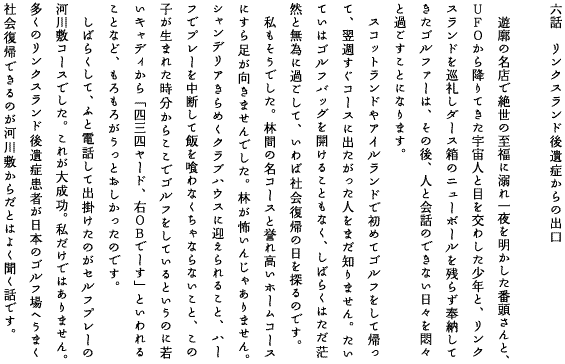 六話　リンクスランド後遺症からの出口
遊廓の名店で絶世の至福に溺れ一夜を明かした番頭さんと、
UFOから降りてきた宇宙人と目を交わした少年と、リンク
スランドを巡礼しダース箱のニューボールを残らず奉納して
きたゴルファーは、その後、人と会話のできない日々を悶々
と過ごすことになります。
スコットランドやアイルランドで初めてゴルフをして帰っ
て、翌週すぐコースに出たがった人をまだ知りません。たい
ていはゴルフバッグを開けることもなく、しばらくはただ茫
然と無為に過ごして、いわば社会復帰の日を探るのです。
私もそうでした。林間の名コースと誉れ高いホームコース
にすら足が向きませんでした。林が怖いんじゃありません。
シャンデリアきらめくクラブハウスに迎えられること、ハー
フでプレーを中断して飯を喰わなくちゃならないこと、この
子が生まれた時分からここでゴルフをしているというのに若
いキャディから「四三四ヤード、右OBでーす」といわれる
ことなど、もろもろがうっとおしかったのです。
しばらくして、ふと電話して出掛けたのがセルフプレーの
河川敷コースでした。これが大成功。私だけではありません。
多くのリンクスランド後遺症患者が日本のゴルフ場へうまく
社会復帰できるのが河川敷からだとはよく聞く話です。